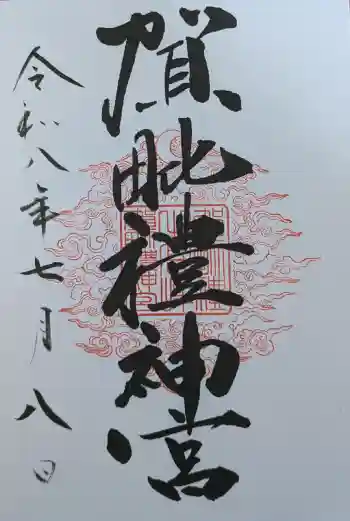 賀毗禮神宮
令和八年七月八日